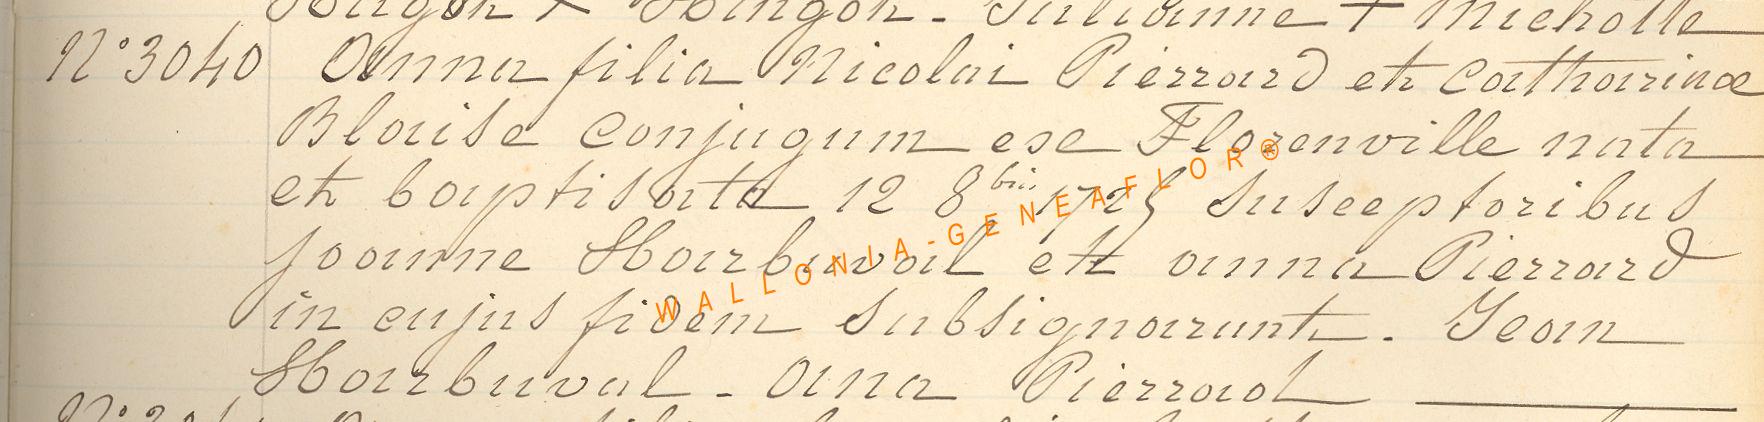 + Hingon - Julianne + Michotte
N° 3040 Anna filia Nicolai Pierrard et Catharinae
Blaise conjugum exe Florenville nata
et baptisata 12 8bris 1725 susceptoribus
joanne Harbuval et anna Pierrard
in cujus fidem subsignarunt. Jean
Harbuval - Ana Pierrad
WALLONIA-GENEAFLOR®